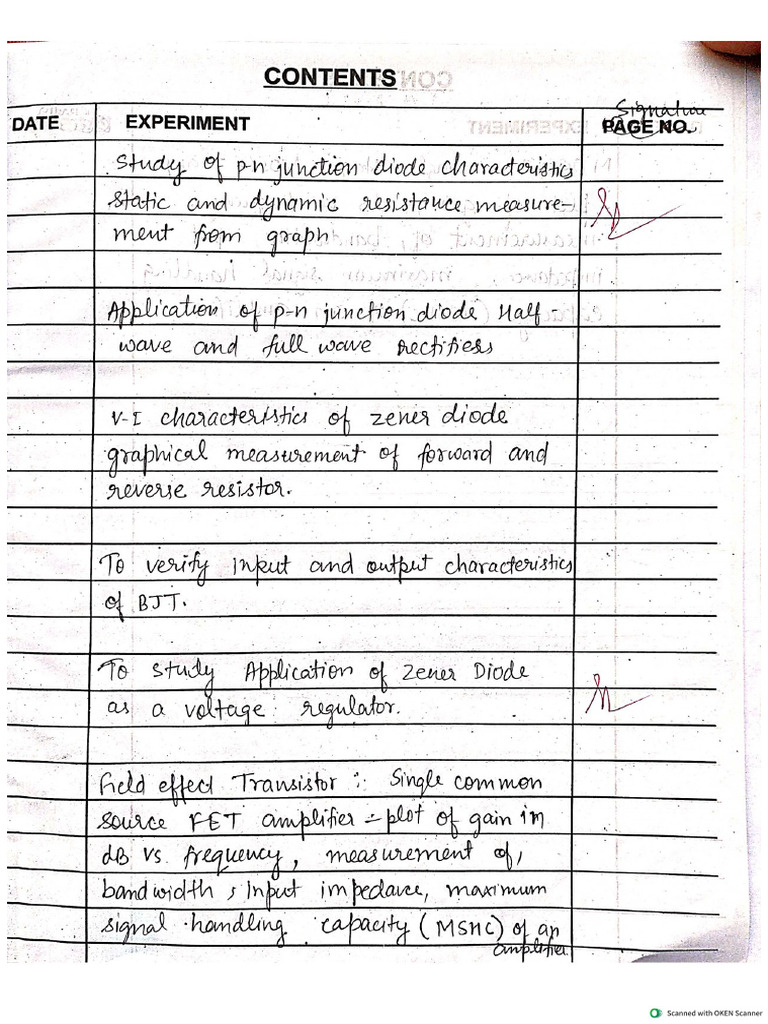 CONTENTS
Signature
DATE EXPERIMENT PAGE NO.
Study of p-n junction diode characteristics
static and dynamic resistance measure-
ment from graph
Application of p-n junction diode Half-
wave and full wave rectifiers
V-I characteristics of zener diode
graphical measurement of forward and
reverse resistor.
To verify input and output characteristics
of BJT.
To study Application of Zener Diode
as a voltage regulator.
Field effect Transistor :- Single common
source FET amplifier - plot of gain in
dB vs. frequency, measurement of,
bandwidth, input impedance, maximum
signal handling capacity (MSHC) of an
amplifier.
Scanned with OKEN Scanner